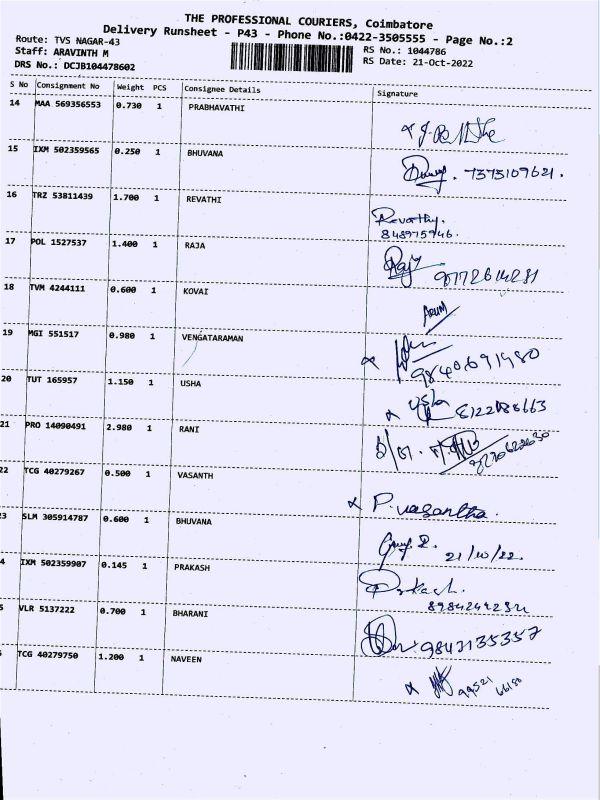 THE PROFESSIONAL COURIERS, Coimbatore
Delivery Runsheet - P43 - Phone No.:0422-3505555 - Page No.:2
Route: TVS NAGAR-43
RS No.: 1044786
Staff: ARAVINTH M
RS Date: 21-Oct-2022
DRS No.: DCJB104478602
S No Consignment No Weight PCS Consignee Details Signature
14 MAA 569356553 0.730 1 PRABHAVATHI
15 IXM 502359565 0.250 1 BHUVANA 7373109621.
16 TRZ 53811439 1.700 1 REVATHI Revathy.
848975946.
17 POL 1527537 1.400 1 RAJA Raj
18 TVM 4244111 0.600 1 KOVAI ARUM
19 MGI 551517 0.980 1 VENGATARAMAN
20 TUT 165957 1.150 1 USHA Usha
21 PRO 14090491 2.980 1 RANI
22 TCG 40279267 0.500 1 VASANTH P. vasantha.
3 SLM 305914787 0.600 1 BHUVANA 21/10/22.
4 IXM 502359907 0.145 1 PRAKASH Prakash.
5 VLR 5137222 0.700 1 BHARANI 9843135357
TCG 40279750 1.200 1 NAVEEN 99521 66180